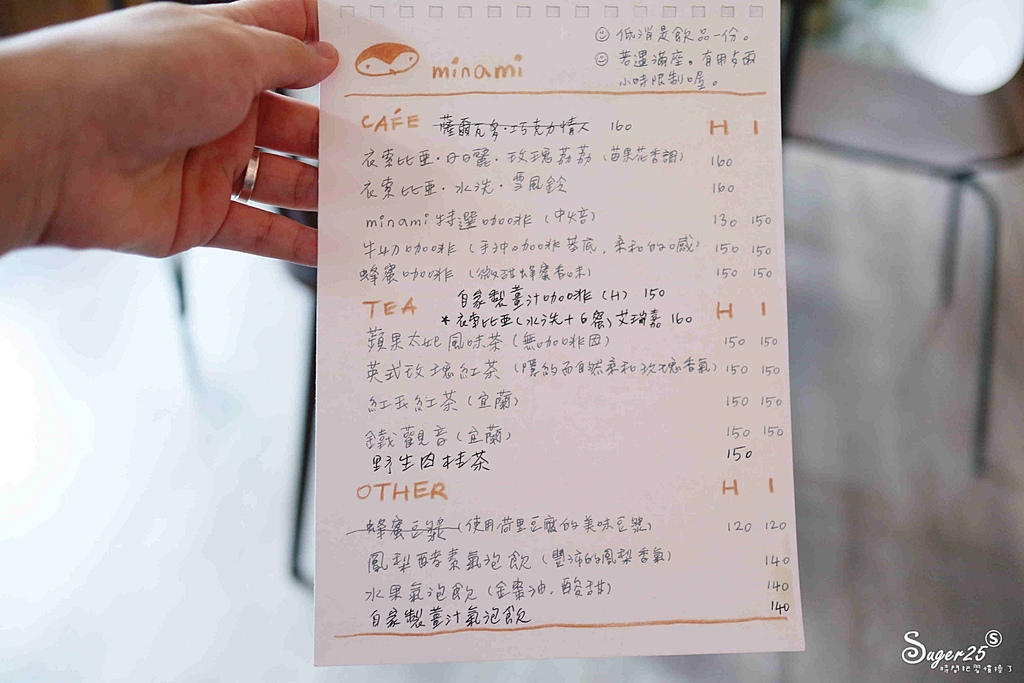 ☺ 低消是飲品一份。
☺ 若遇滿座。有用餐兩
小時限制喔。
minami
CAFÉ 薩爾瓦多·巧克力情人 160 H I
衣索比亞·日日曬·玫瑰荔荔(莓果花香調) 160
衣索比亞·水洗·雪風鈴 160
minami 特選咖啡(中焙) 130 150
牛奶咖啡(手沖咖啡基底,柔和的口感) 150 150
蜂蜜咖啡(微甜蜂蜜香味) 150 150
自家製薑汁咖啡(H) 150
TEA H I
*衣索比亞(水洗+白蜜)艾瑞嘉 160
蘋果太妃風味茶(無咖啡因) 150 150
英式玫瑰紅茶(隱約而自然柔和玫瑰香氣) 150 150
紅玉紅茶(宜蘭) 150 150
鐵觀音(宜蘭) 150 150
野生肉桂茶 150
OTHER H I
蜂蜜豆漿(使用荷里豆腐的美味豆漿) 120 120
鳳梨酵素氣泡飲(豐沛的鳳梨香氣) 140
水果氣泡飲(金棗油,酸甜) 140
自家製薑汁氣泡飲 140
Suger25 S
時間把習慣換了